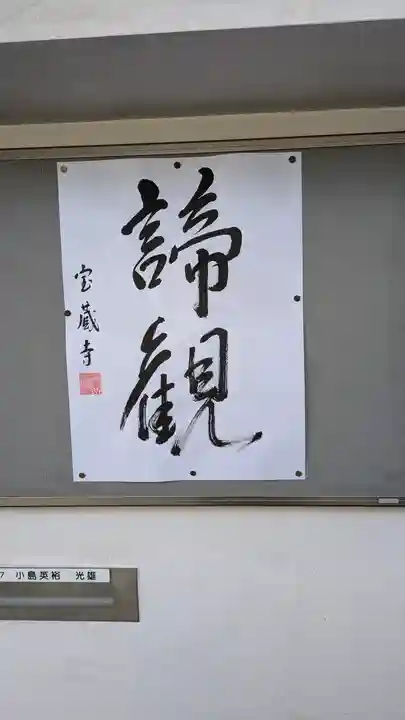 諦観
宝蔵寺
7 小島英裕 光雄